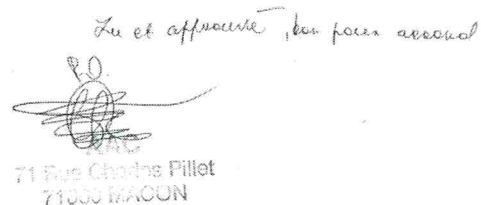 Lu et approuvé, bon pour accord
P.O.
71 Rue Charles Pillet
71000 MACON